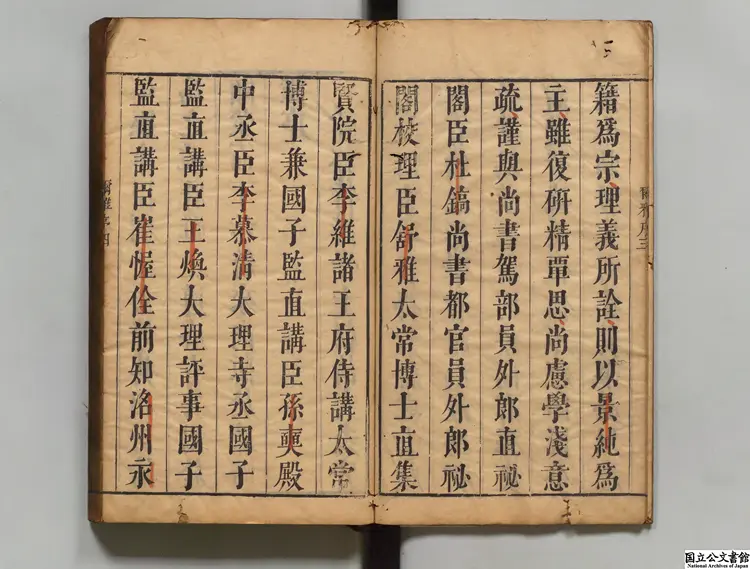 籍爲宗理義所詮則以景純爲
主雖復研精覃思尚慮學淺意
疏謹與尚書駕部員外郎直祕
閣臣杜鎬尚書都官員外郎祕
閣校理臣舒雅太常博士直集
賢院臣李維諸王府侍講太常
博士兼國子監直講臣孫奭殿
中丞臣李慕清大理寺丞國子
監直講臣王煥大理評事國子
監直講臣崔偓佺前知洺州永
国立公文書館
National Archives of Japan